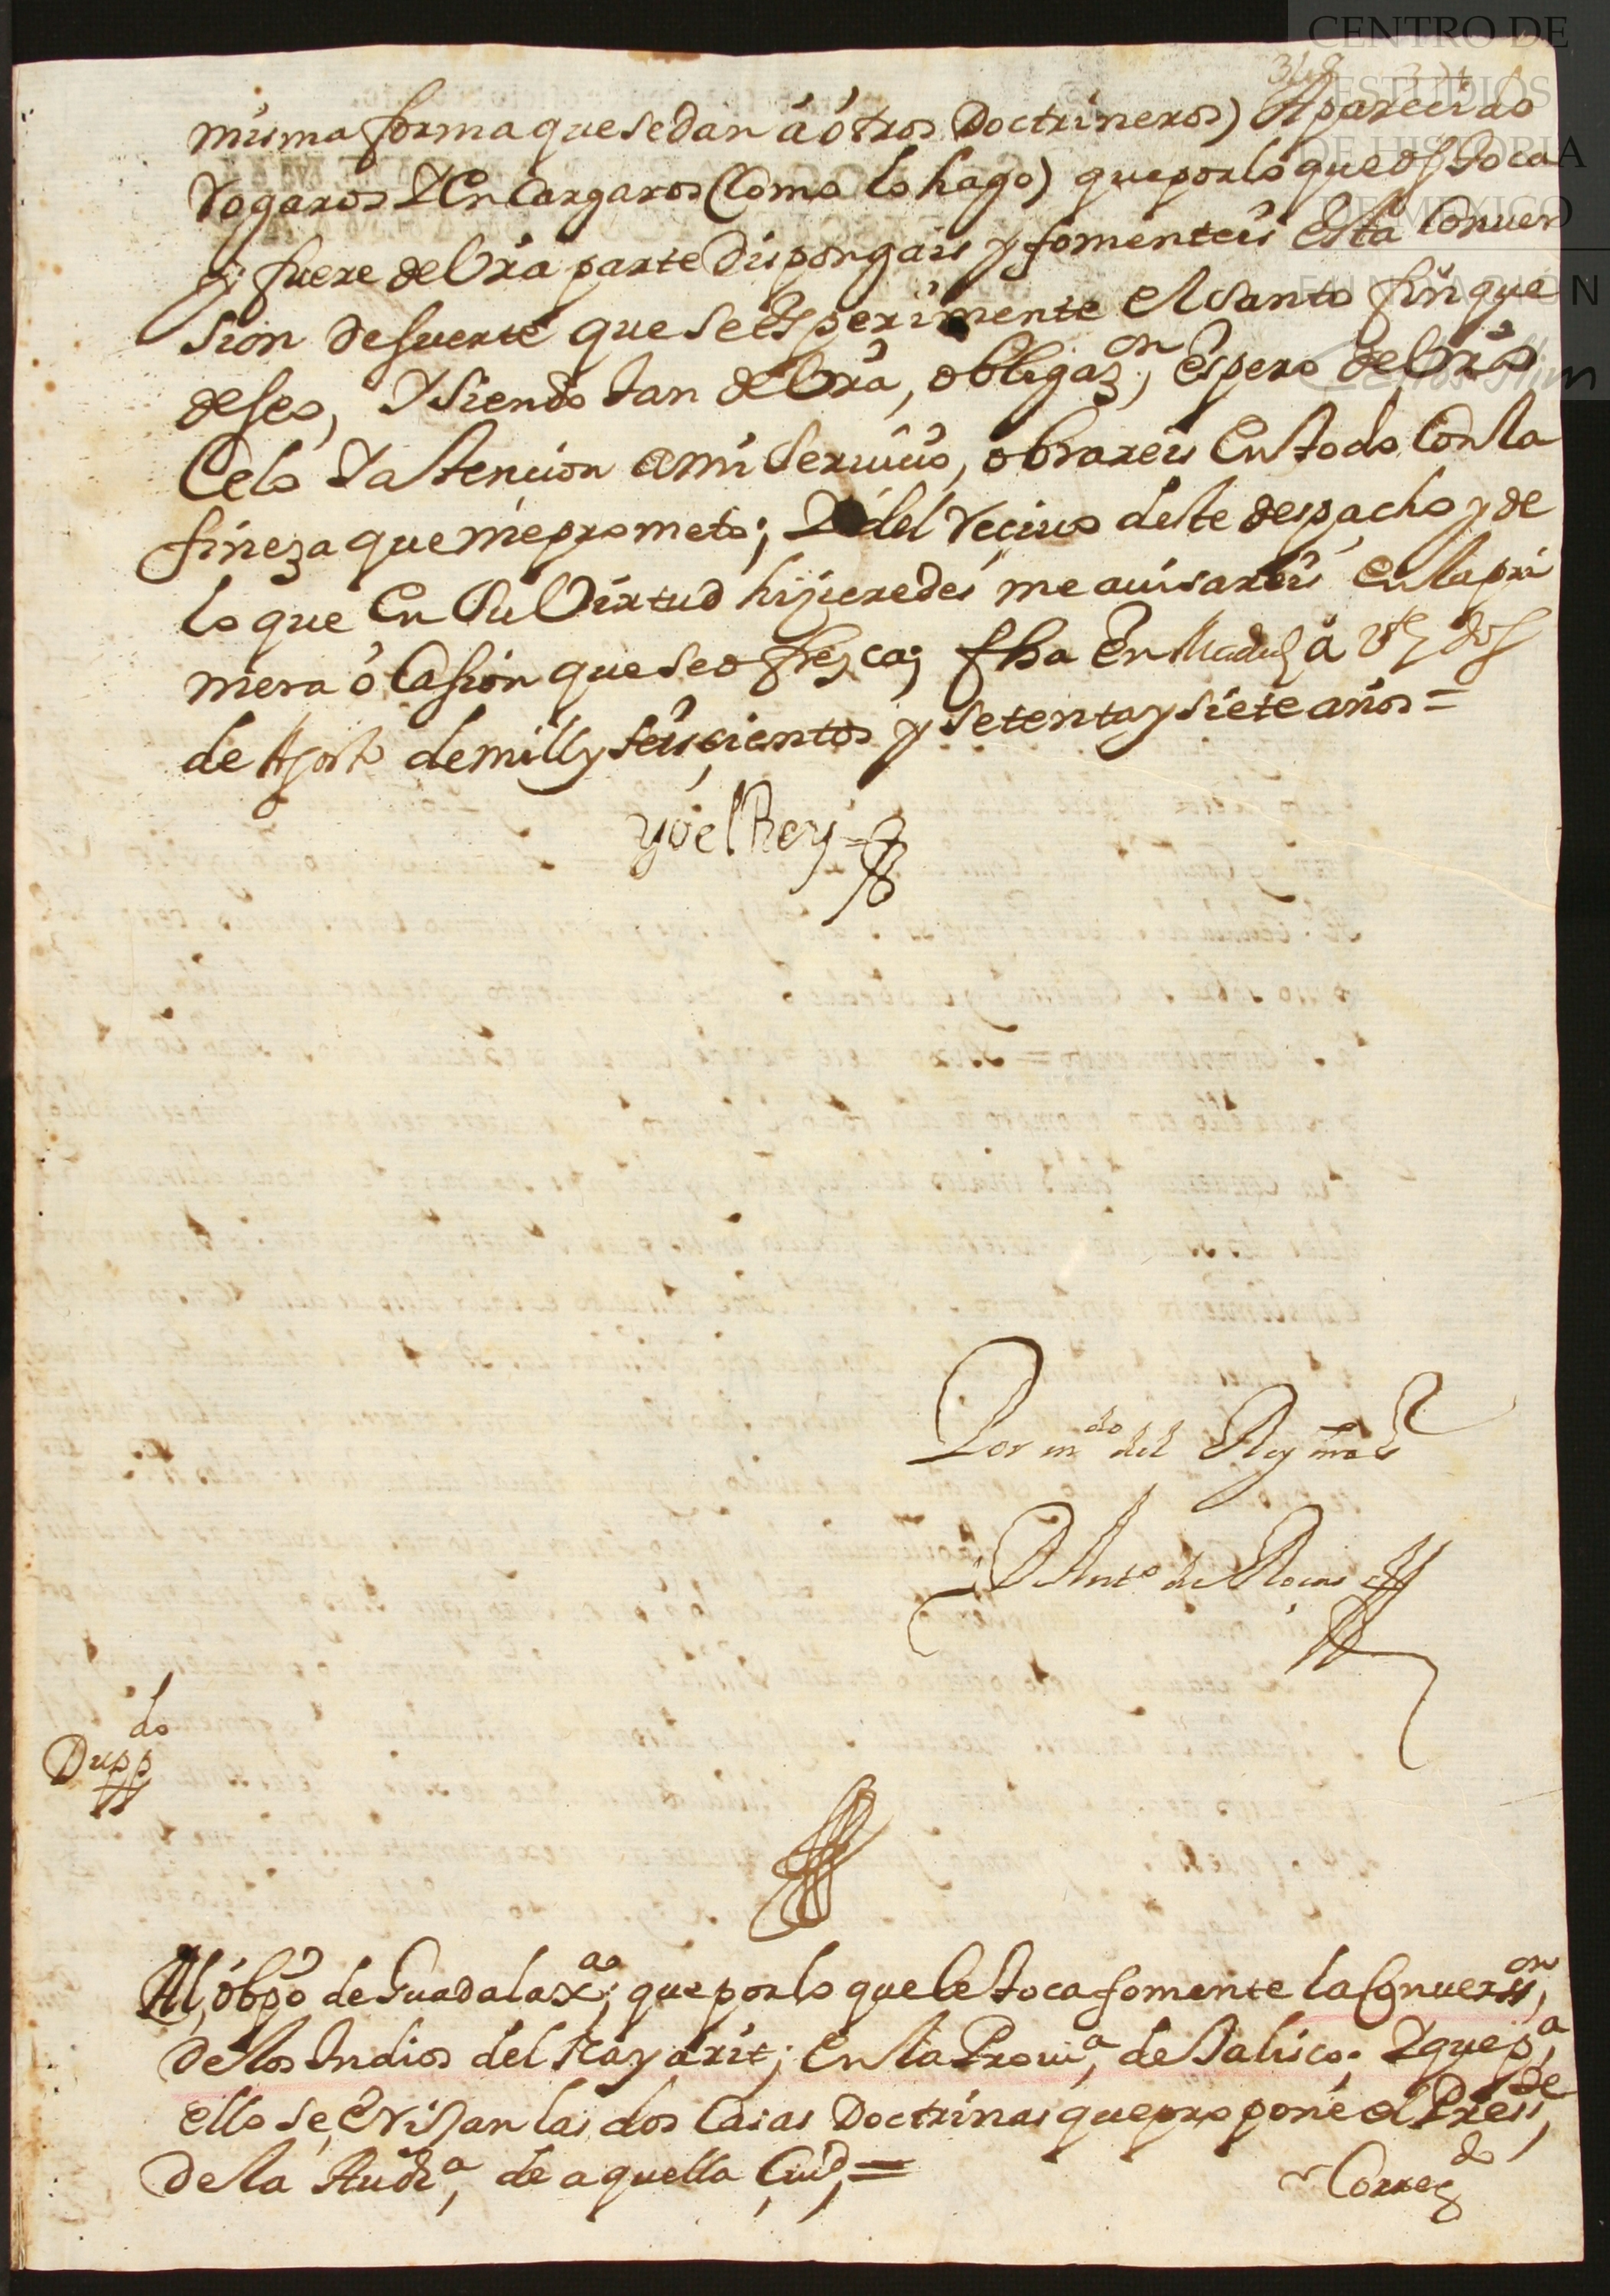 CENTRO DE
ESTUDIOS
DE HISTORIA
DE MEXICO
FUNDACIÓN
misma forma que se dan a ótros Doctrineros) Aparecido
Rogaros Y Encargaros (Como lo hago) que por lo que os toca
y fuere de Vra parte Dispongais y fomenteis esta Conuer
sion de suerte que se esperimente el santo fin que
deseo, Y siendo tan de Vra, obligaz.on, espero de Vro
Celo Y atencion a mi seruicio, obrareis En todo Con la
fineza que me prometo; Y del reciuo deste despacho y de
lo que En su Virtud hizieredes me auisareis en la pri
mera ocasion que se ofrezca; fha En Madrid a Vte y dos
de Agosto de mill y seiscientos y setenta y siete años =
Yo el Rey
Por mdo del Rey nro sr
D Anto de Rocas
Duppdo
Al, óbpo de Guadalaxa.; que por lo que le toca fomente la Conuerson,
de los Indios del Nayarit; en la Prouia, de Jalisco; Y que pa,
ello se, erijan las dos Casas Doctrinas que propone el Preside,
de la Auda, de aquella Ciud, =
Corregdo